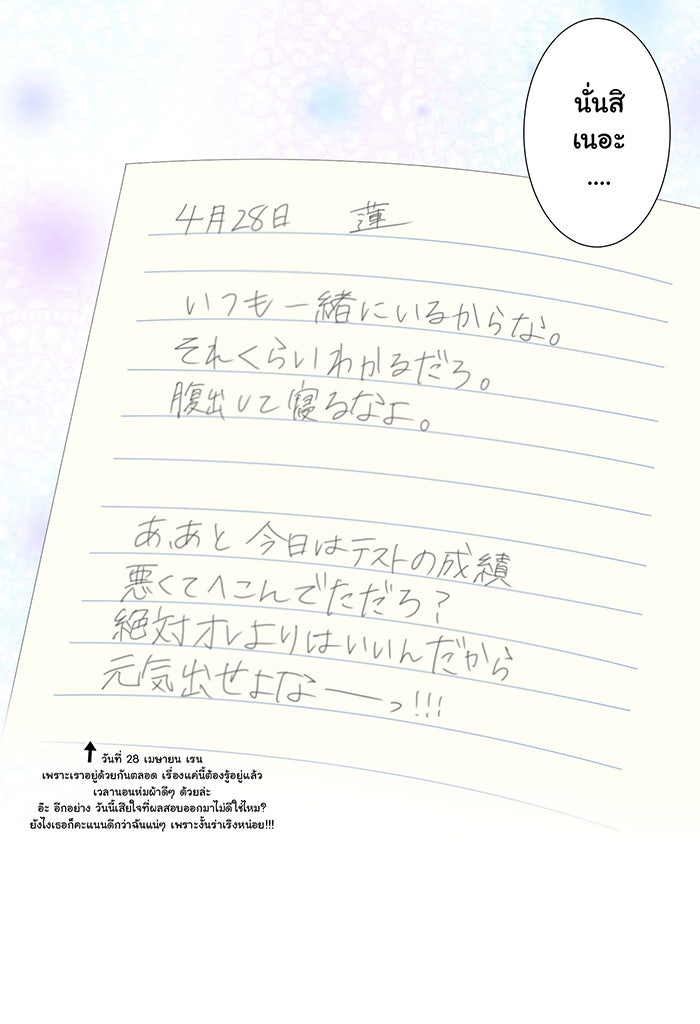 นั่นสิ
เนอะ
....
4月28日 蓮
いつも一緒にいるからな。
それくらいわかるだろ。
腹出して寝るなよ。
あ、あと 今日はテストの成績
悪くてへこんでただろ?
絶対オレよりはいいんだから
元気出せよなーっ!!!
↑ วันที่ 28 เมษายน เรน
เพราะเราอยู่ด้วยกันตลอด เรื่องแค่นี้ต้องรู้อยู่แล้ว
เวลานอนห่มผ้าดีๆ ด้วยล่ะ
อ๊ะ อีกอย่าง วันนี้เสียใจที่ผลสอบออกมาไม่ดีใช่ไหม?
ยังไงเธอก็คะแนนดีกว่าฉันแน่ๆ เพราะงั้นร่าเริงหน่อย!!!